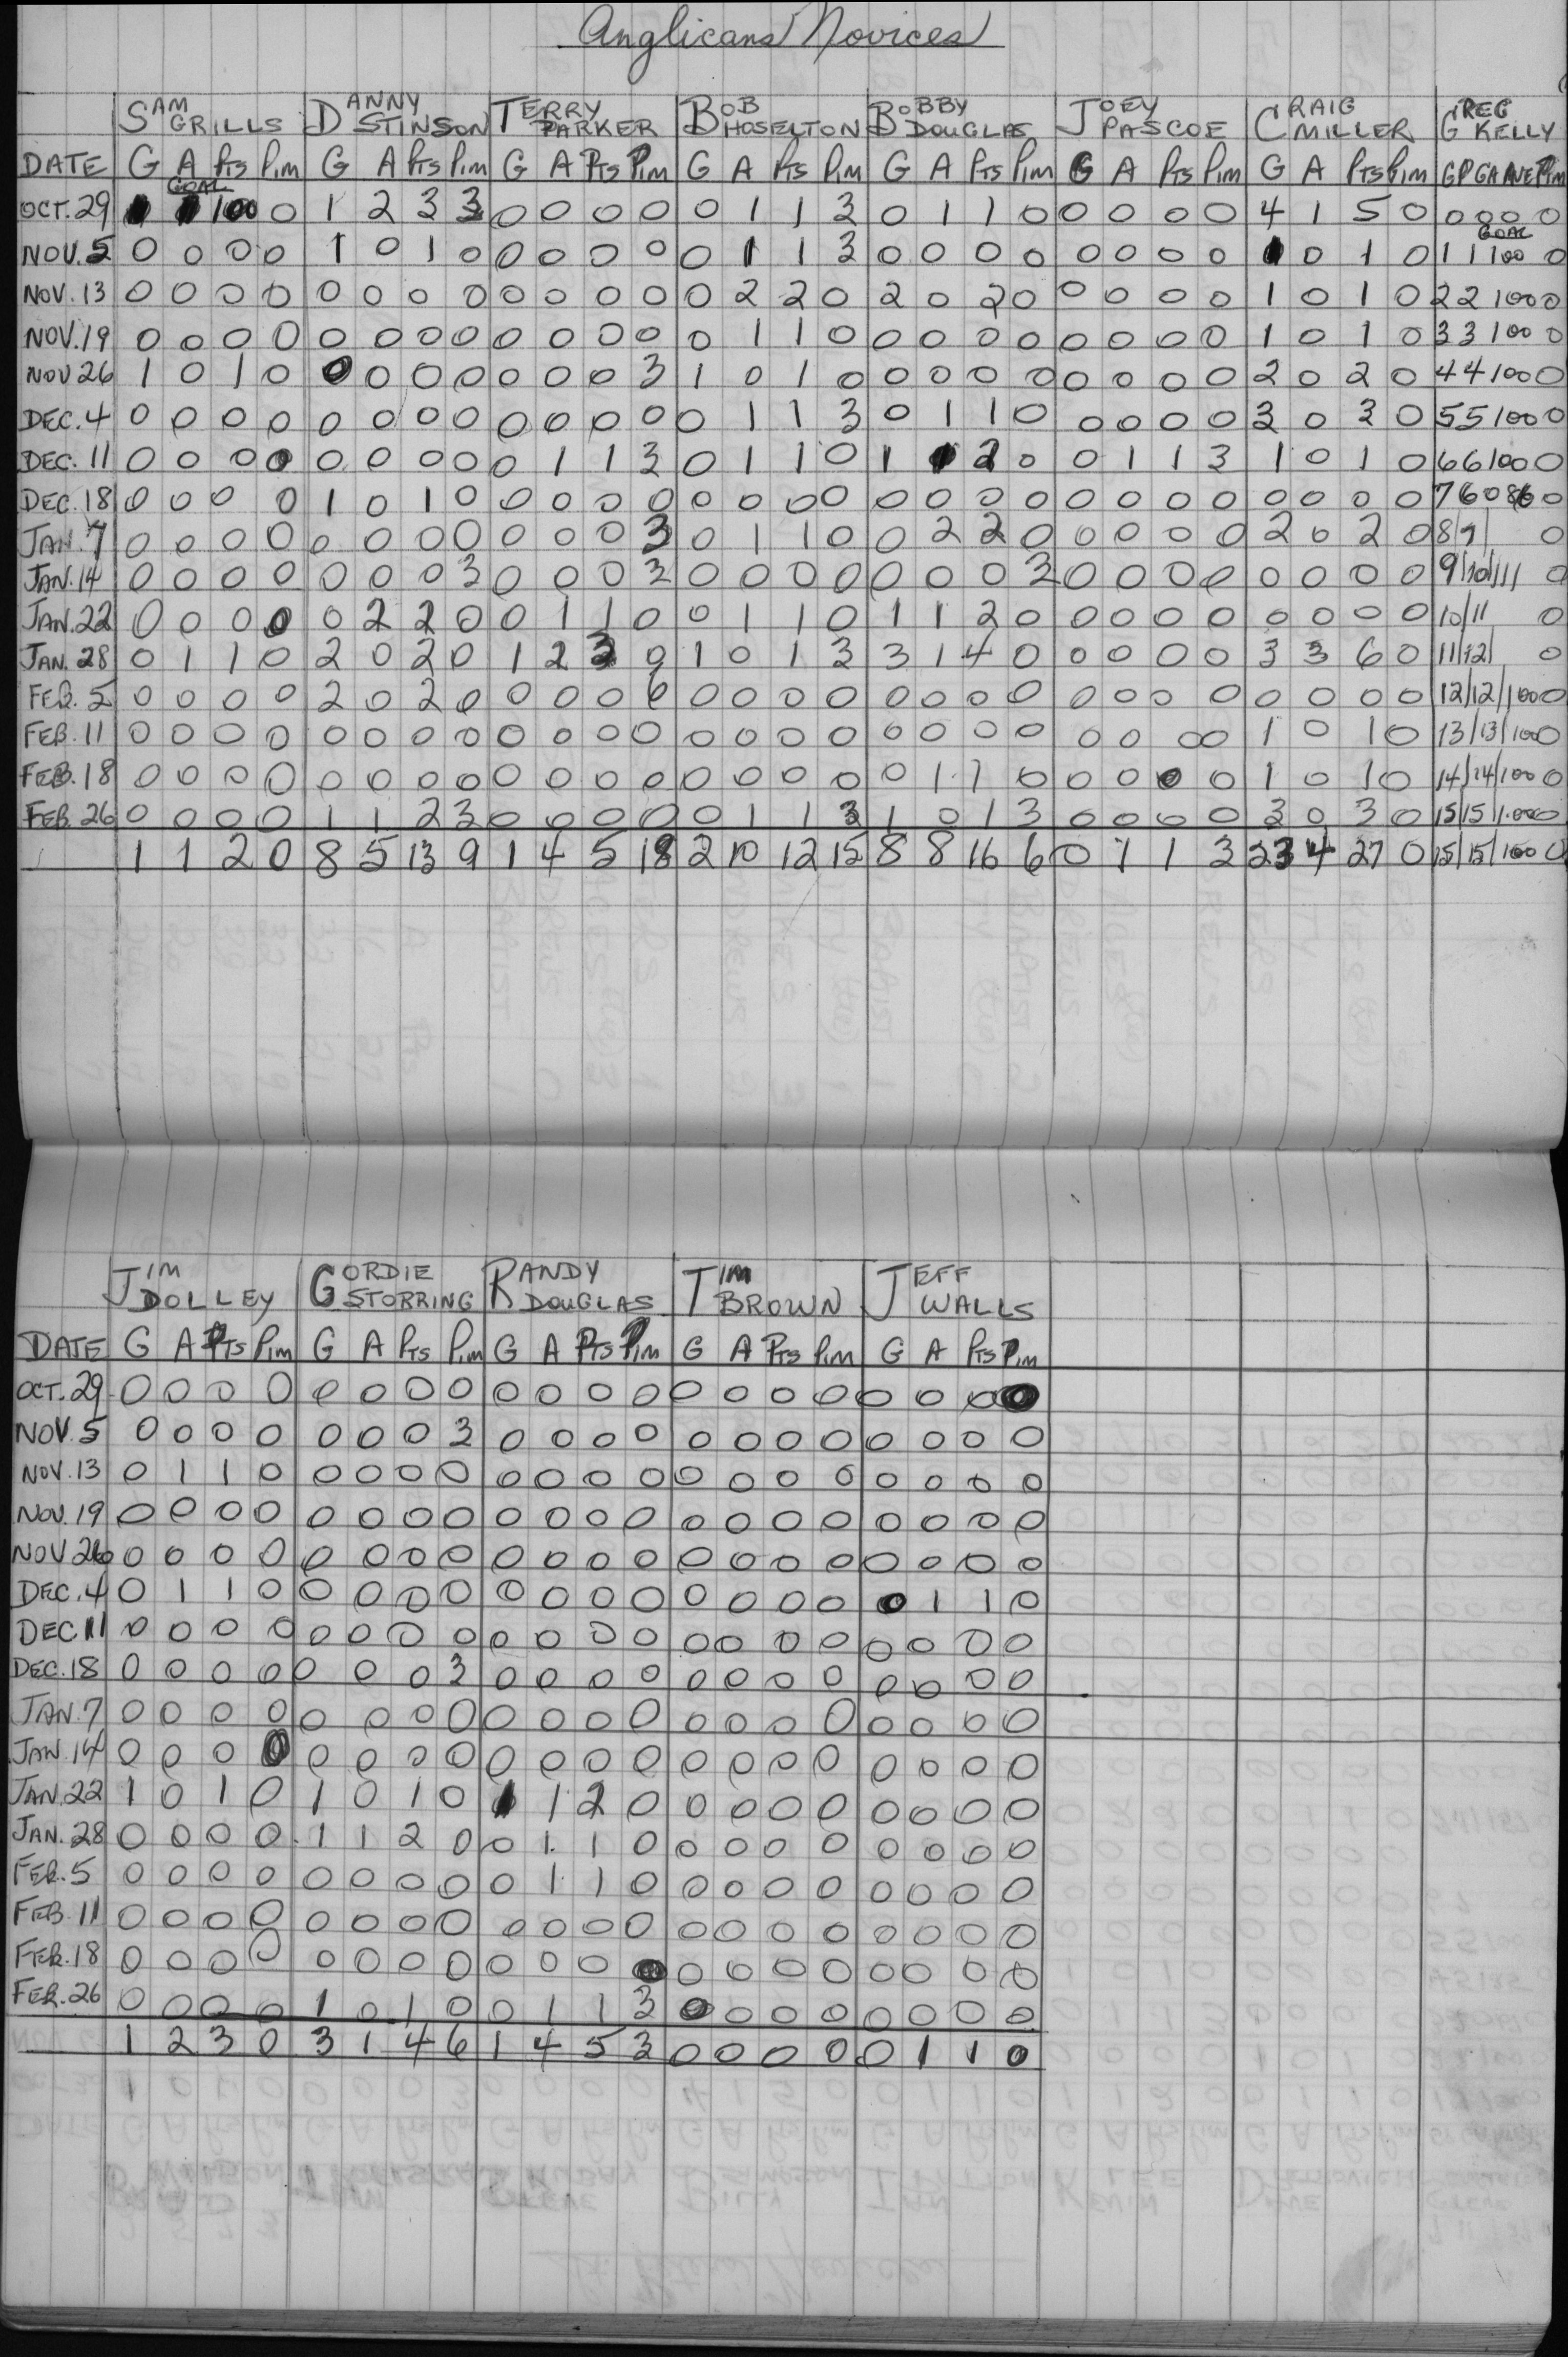 Anglicans Novices
SAM GRILLS DANNY STINSON TERRY PARKER BOB HOSELTON BOBBY DOUGLAS JOEY PASCOE CRAIG MILLER GREG KELLY
DATE G A PTS PIM G A PTS PIM G A PTS PIM G A PTS PIM G A PTS PIM G A PTS PIM G A PTS PIM GP GA AVE PIM
OCT. 29 1 1 GOAL 100 0 1 2 3 3 0 0 0 0 0 1 1 3 0 1 1 0 0 0 0 0 4 1 5 0 0 0 0 0
NOV. 5 0 0 0 0 1 0 1 0 0 0 0 0 0 1 1 3 0 0 0 0 0 0 0 0 1 0 1 0 1 1 GOAL 100 0
NOV. 13 0 0 0 0 0 0 0 0 0 0 0 0 0 2 2 0 2 0 2 0 0 0 0 0 1 0 1 0 2 2 100 0
NOV. 19 0 0 0 0 0 0 0 0 0 0 0 0 0 1 1 0 0 0 0 0 0 0 0 0 1 0 1 0 3 3 100 0
NOV 26 1 0 1 0 0 0 0 0 0 0 0 3 1 0 1 0 0 0 0 0 0 0 0 0 2 0 2 0 4 4 100 0
DEC. 4 0 0 0 0 0 0 0 0 0 0 0 0 0 1 1 3 0 1 1 0 0 0 0 0 3 0 3 0 5 5 100 0
DEC. 11 0 0 0 0 0 0 0 0 0 1 1 3 0 1 1 0 1 1 2 0 0 1 1 3 1 0 1 0 6 6 100 0
DEC. 18 0 0 0 0 1 0 1 0 0 0 0 0 0 0 0 0 0 0 0 0 0 0 0 0 0 0 0 0 7 6 0 86 0
JAN. 7 0 0 0 0 0 0 0 0 0 0 0 3 0 1 1 0 0 2 2 0 0 0 0 0 2 0 2 0 8 9 0
JAN. 14 0 0 0 0 0 0 0 3 0 0 0 3 0 0 0 0 0 0 0 3 0 0 0 0 0 0 0 0 9/10/111 0
JAN. 22 0 0 0 0 0 2 2 0 0 1 1 0 0 1 1 0 1 1 2 0 0 0 0 0 0 0 0 0 10/11 0
JAN. 28 0 1 1 0 2 0 2 0 1 2 3 9 1 0 1 3 3 1 4 0 0 0 0 0 3 3 6 0 11/12/ 0
FEB. 5 0 0 0 0 2 0 2 0 0 0 0 6 0 0 0 0 0 0 0 0 0 0 0 0 0 0 0 0 12/12/100 0
FEB. 11 0 0 0 0 0 0 0 0 0 0 0 0 0 0 0 0 0 0 0 0 0 0 0 0 1 0 1 0 13/13/100 0
FEB. 18 0 0 0 0 0 0 0 0 0 0 0 0 0 0 0 0 0 1 1 0 0 0 0 0 1 0 1 0 14/14/100 0
FEB. 26 0 0 0 0 1 1 2 3 0 0 0 0 0 1 1 3 1 0 1 3 0 0 0 0 3 0 3 0 15/15/1.00 0
1 1 2 0 8 5 13 9 1 4 5 18 2 10 12 15 8 8 16 6 0 1 1 3 23 4 27 0 15/15/100 0
JIM DOLLEY GORDIE STORRING RANDY DOUGLAS TIM BROWN JEFF WALLS
DATE G A PTS PIM G A PTS PIM G A PTS PIM G A PTS PIM G A PTS PIM
OCT. 29 0 0 0 0 0 0 0 0 0 0 0 0 0 0 0 0 0 0 0 0
NOV. 5 0 0 0 0 0 0 0 3 0 0 0 0 0 0 0 0 0 0 0 0
NOV. 13 0 1 1 0 0 0 0 0 0 0 0 0 0 0 0 0 0 0 0 0
NOV. 19 0 0 0 0 0 0 0 0 0 0 0 0 0 0 0 0 0 0 0 0
NOV 26 0 0 0 0 0 0 0 0 0 0 0 0 0 0 0 0 0 0 0 0
DEC. 4 0 1 1 0 0 0 0 0 0 0 0 0 0 0 0 0 0 1 1 0
DEC 11 0 0 0 0 0 0 0 0 0 0 0 0 0 0 0 0 0 0 0 0
DEC. 18 0 0 0 0 0 0 0 3 0 0 0 0 0 0 0 0 0 0 0 0
JAN. 7 0 0 0 0 0 0 0 0 0 0 0 0 0 0 0 0 0 0 0 0
JAN. 14 0 0 0 0 0 0 0 0 0 0 0 0 0 0 0 0 0 0 0 0
JAN. 22 1 0 1 0 1 0 1 0 1 1 2 0 0 0 0 0 0 0 0 0
JAN. 28 0 0 0 0 1 1 2 0 0 1 1 0 0 0 0 0 0 0 0 0
FEB. 5 0 0 0 0 0 0 0 0 0 1 1 0 0 0 0 0 0 0 0 0
FEB. 11 0 0 0 0 0 0 0 0 0 0 0 0 0 0 0 0 0 0 0 0
FEB. 18 0 0 0 0 0 0 0 0 0 0 0 0 0 0 0 0 0 0 0 0
FEB. 26 0 0 0 0 1 0 1 0 0 1 1 3 0 0 0 0 0 0 0 0
1 2 3 0 3 1 4 6 1 4 5 3 0 0 0 0 0 1 1 0